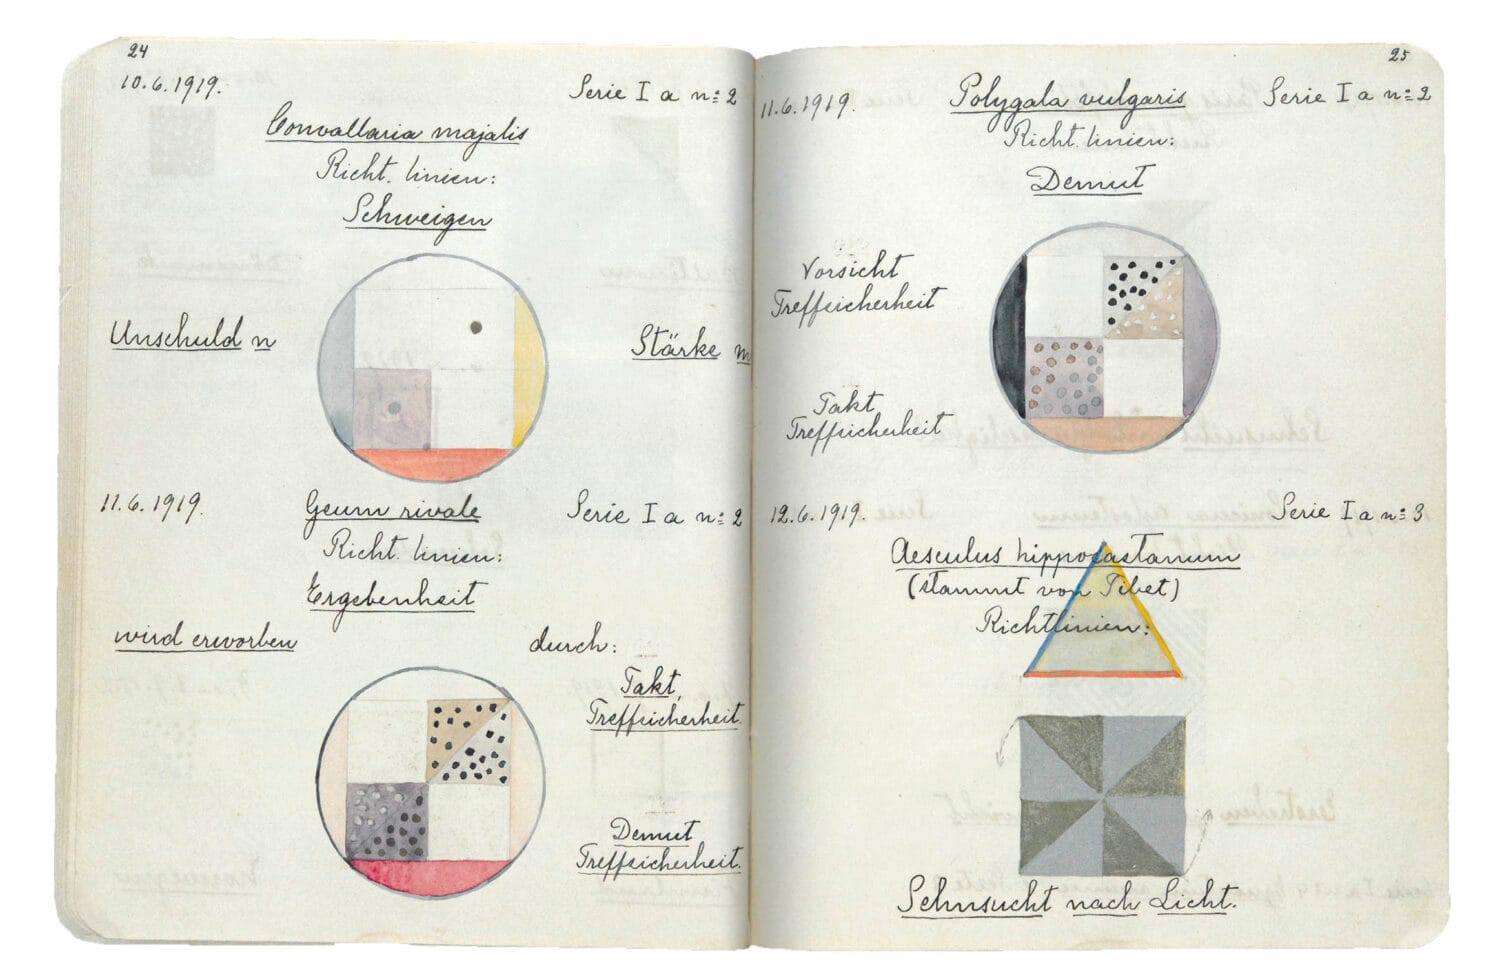 24
10.6.1919.
Serie I a n: 2
Convallaria majalis
Richt. linien:
Schweigen
Unschuld n
Stärke m
11.6.1919.
Geum rivale
Serie I a n: 2
Richt. linien:
Ergebenheit
wird erworben
durch:
Takt,
Treffsicherheit.
Demut
Treffsicherheit.
25
11.6.1919.
Polygala vulgaris
Serie I a n: 2
Richt. linien:
Demut
Vorsicht
Treffsicherheit
Takt
Treffsicherheit
12.6.1919.
Serie I a n: 3
Aesculus hippocastanum
(stammt von Tibet)
Richtlinien:
Sehnsucht nach Licht.